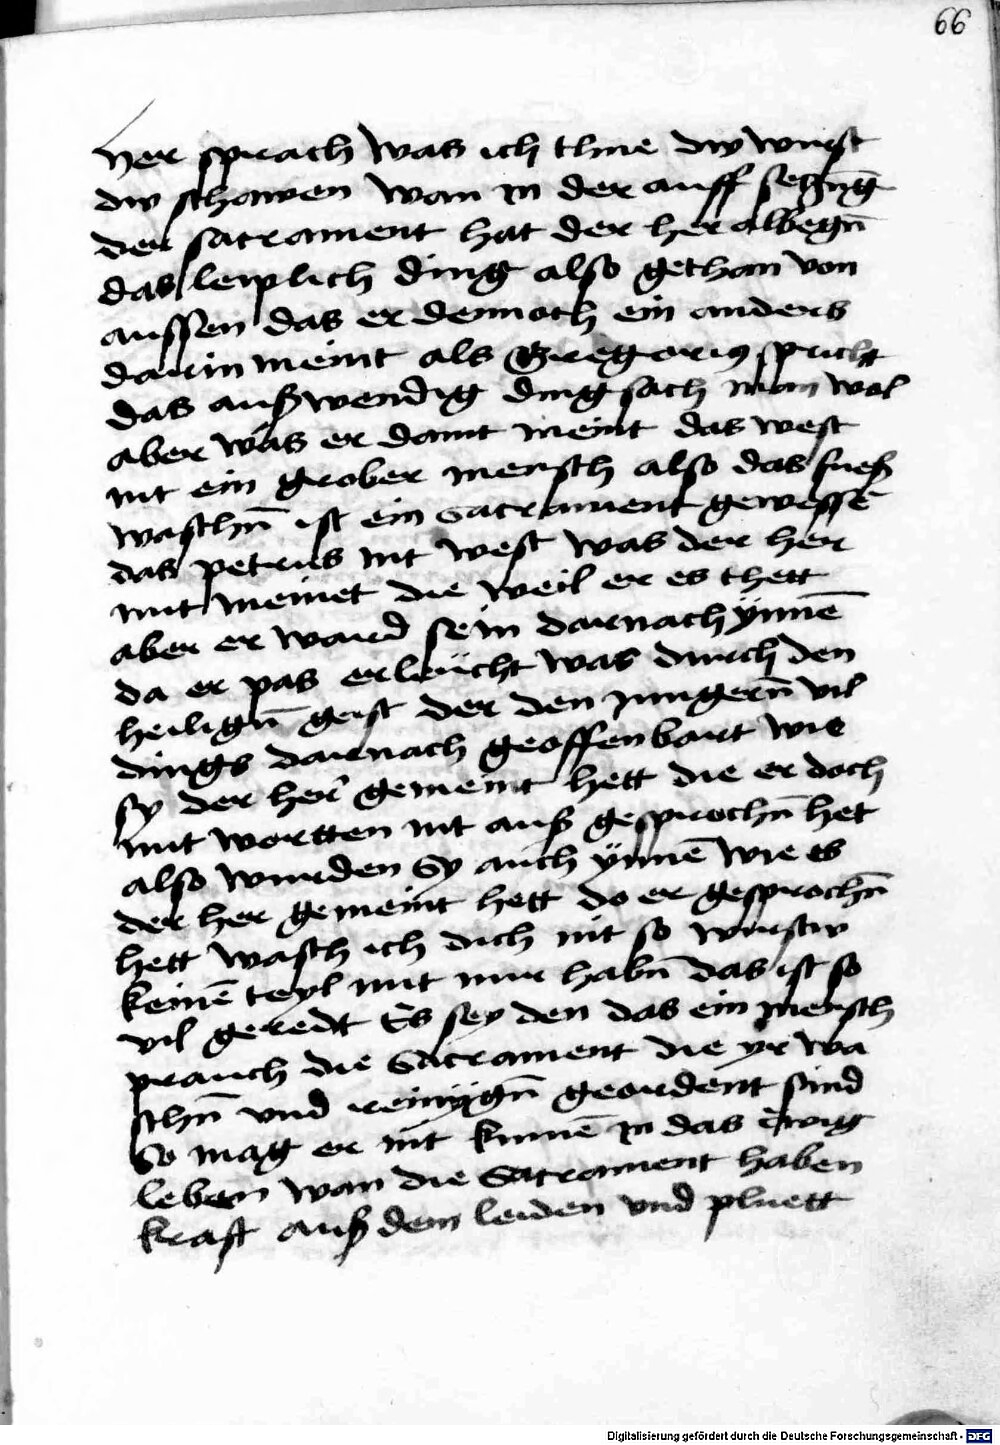 66
her sprach was ich thue dw wirst
dw schawen wan in der auff seczūg
der sacrament hat der her albegn̄
das leiplich ding also gethan von
aussen das er dennoch ein anders
darin meint als Gregorius spricht
das außwendig ding sach man wol
aber was er damit meint das west
nit ein grober mensch also das fueß
waschn̄ ist ein sacrament gewessē
das petrus nit west was der her
mit meinet die weil er es thett
aber er ward sein darnach ÿnnē
da er pas erleücht was durch den
heilign̄ geist der den jungern̄ vil
dings darnach geoffenbart wie
sy der her gemeint hett die er doch
mit wortten nit auß gesprochn̄ het
also wurden sy auch ÿnnē wie es
der her gemeint hett do er gesprochn̄
hett wasch ich dich nit so wirstw
keinē teyl mit mir habn̄ das ist so
vil geredt Es sey den das ein mensch
prauch die sacrament die yr wa
schn̄ vnd reinÿgn̄ geordent sind
So mag er nit kumē in das ewig
leben wan die Sacrament haben
kraft auß dem leiden vnd pluett
Digitalisierung gefördert durch die Deutsche Forschungsgemeinschaft - DFG